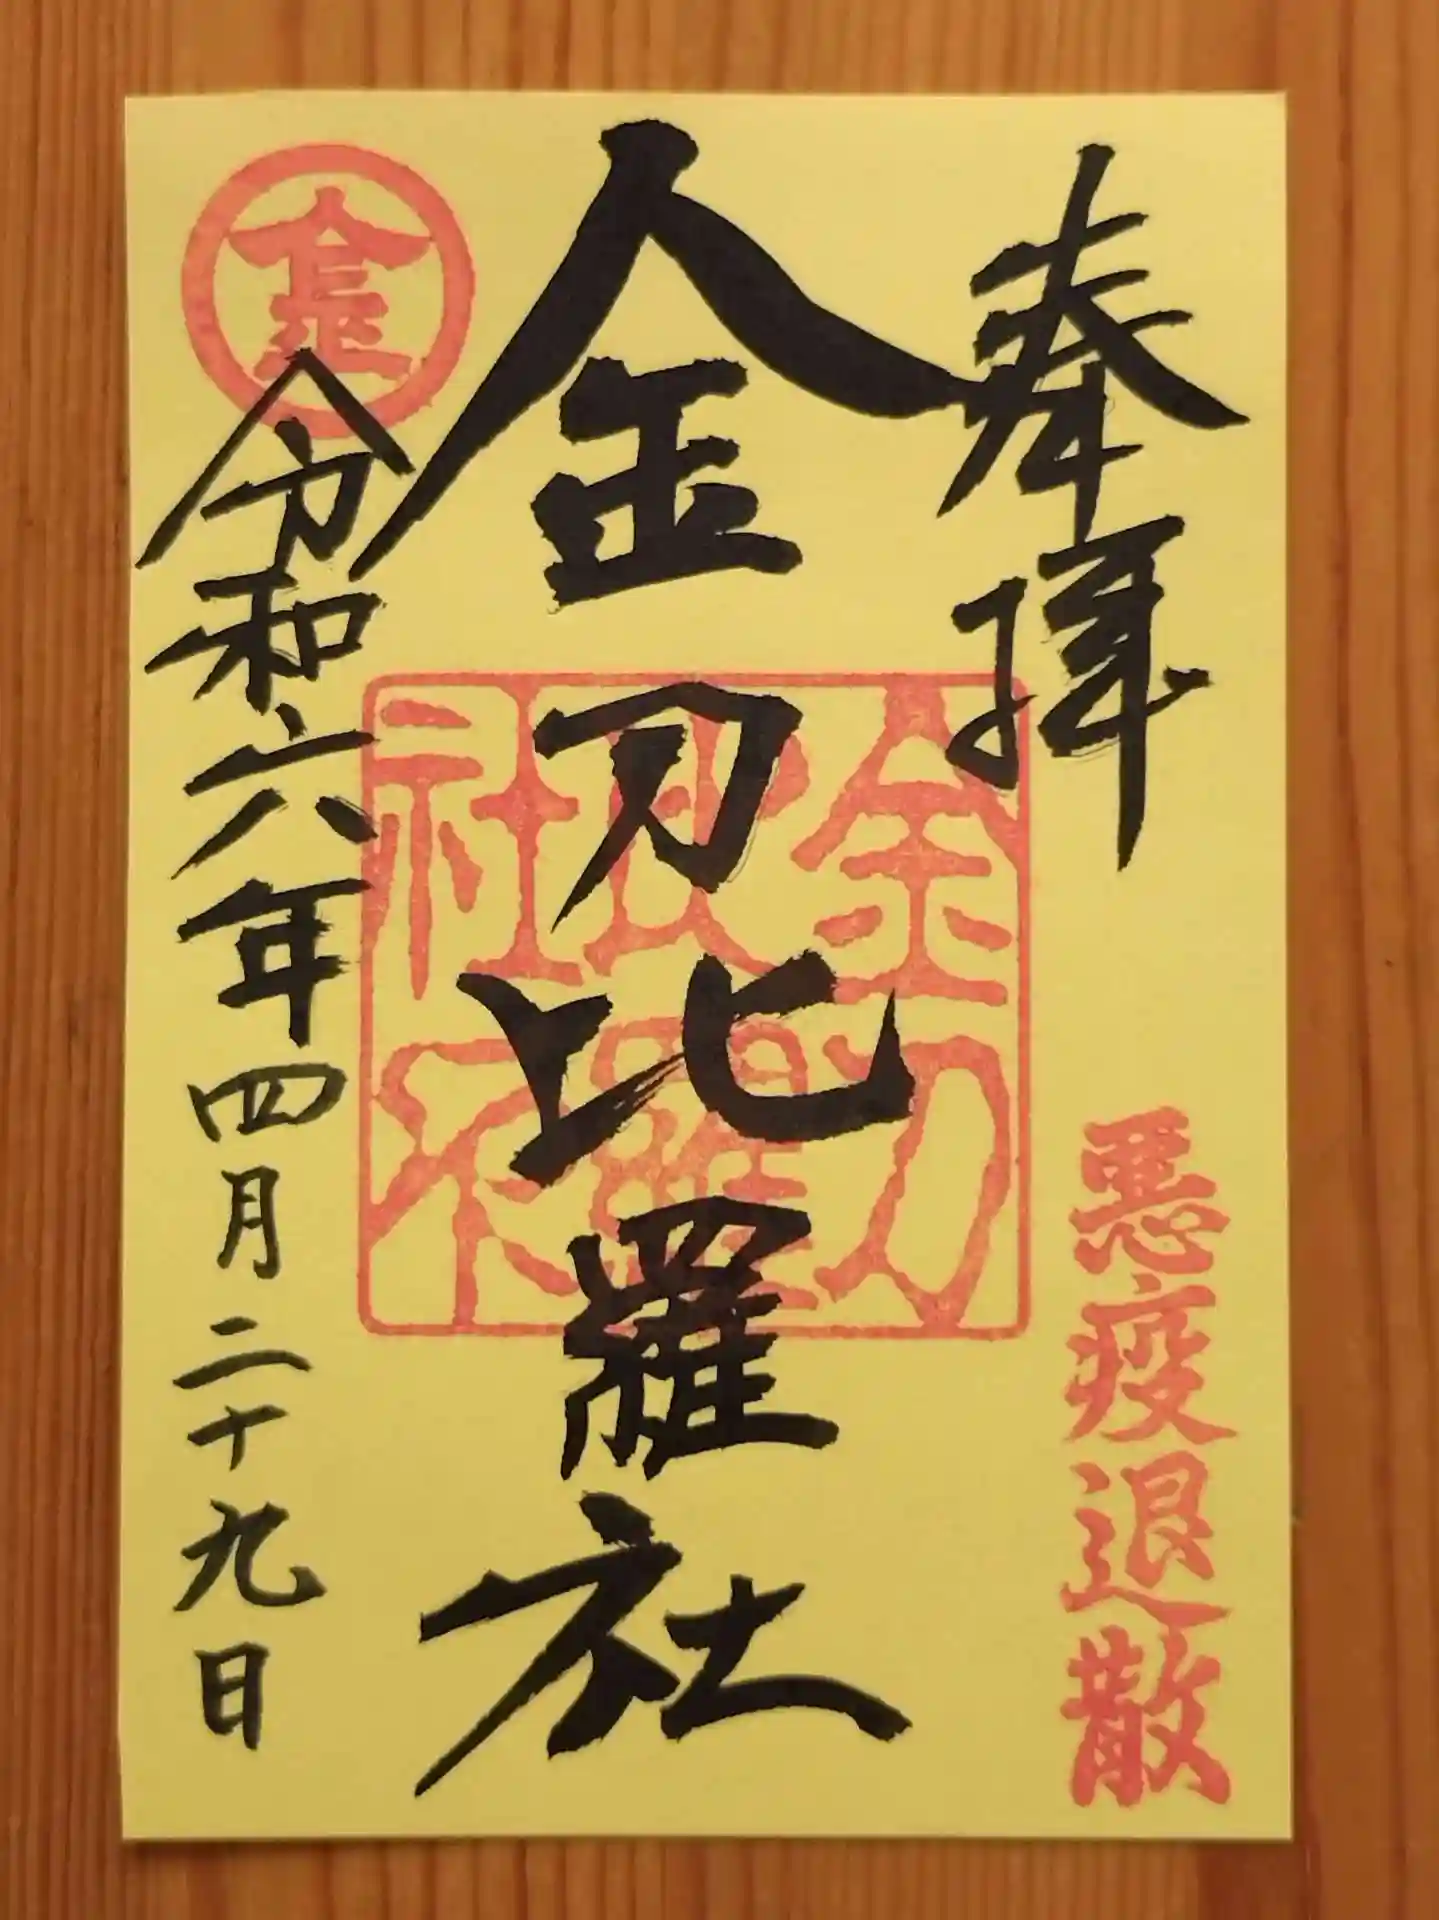 奉拝
悪疫退散
金刀比羅社
金刀
比羅
社
令和六年四月二十九日